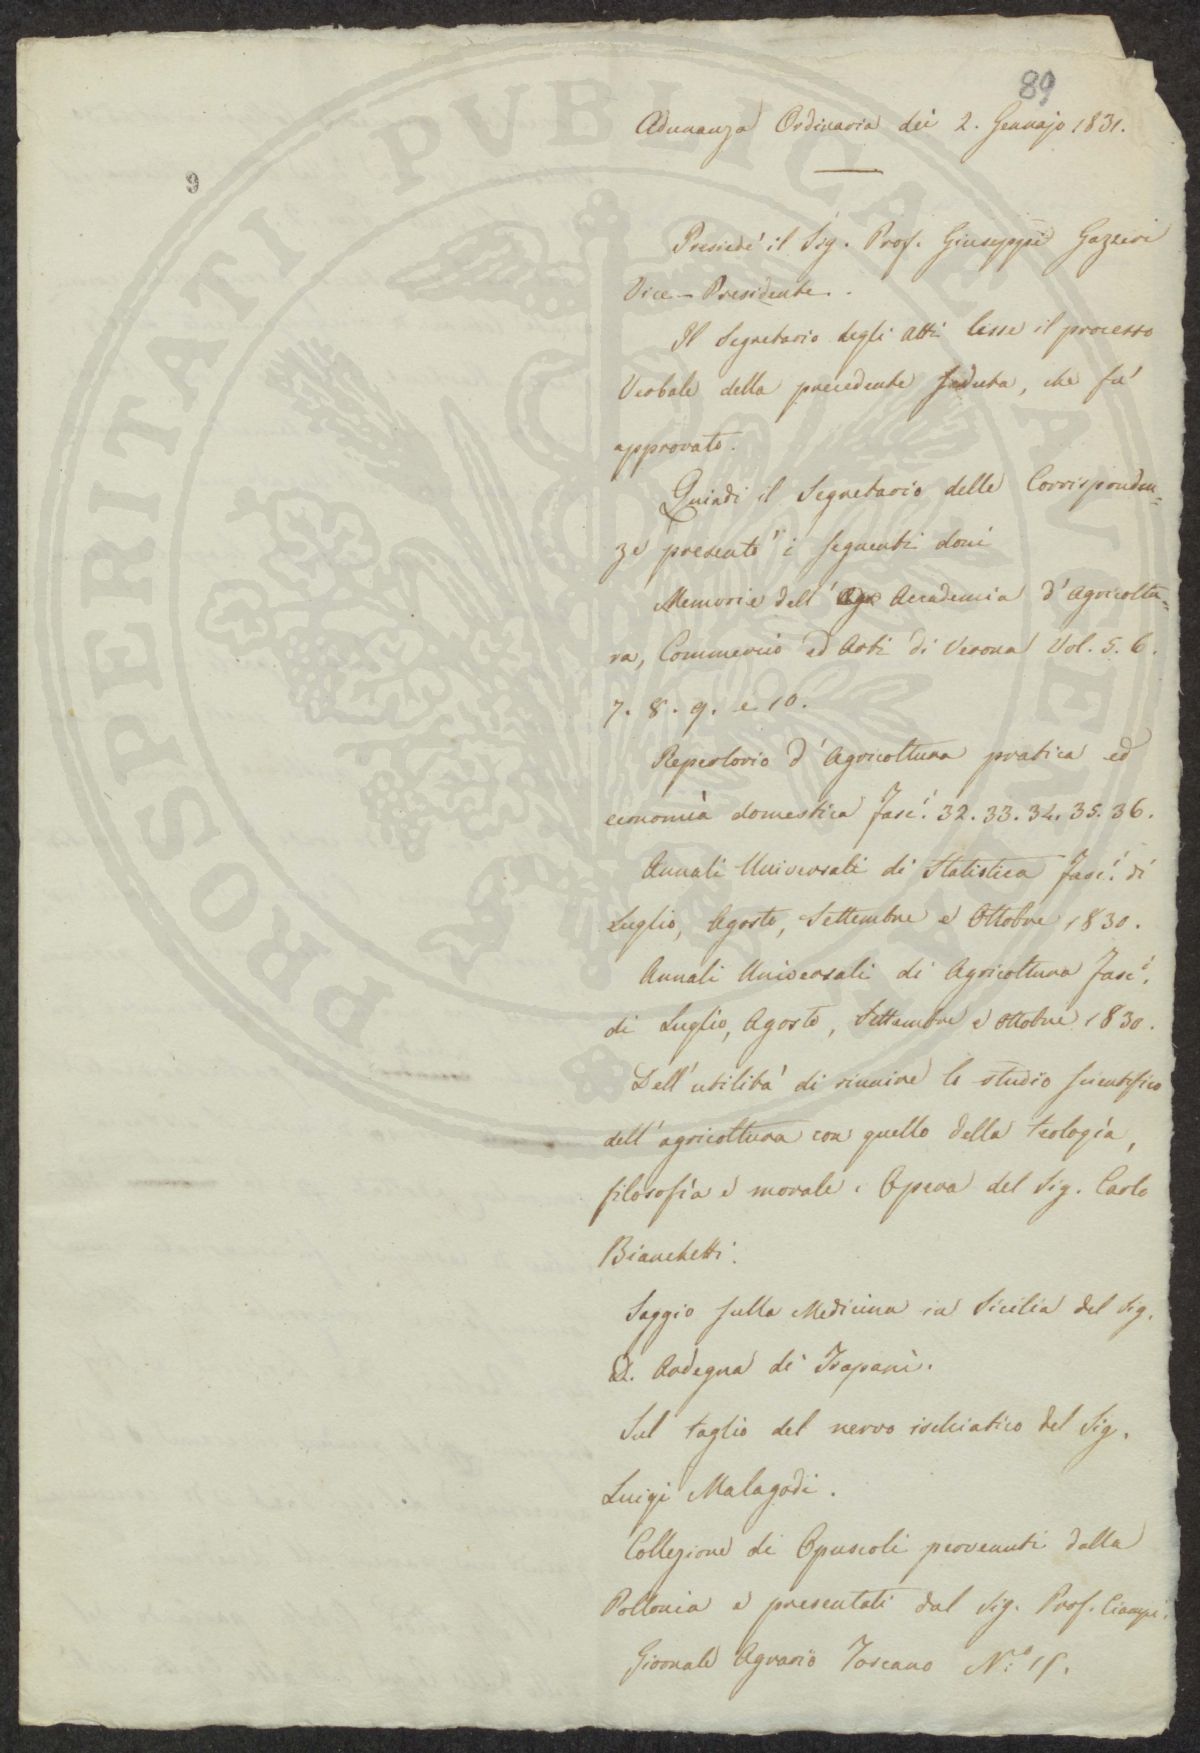 89
Adunanza Ordinaria dei 2. Gennajo 1831.
9
Presiedé il Sig. Prof. Giuseppe Gazzeri
Vice-Presidente.
Il Segretario degli Atti lesse il processo
Verbale della precedente seduta, che fu'
approvato.
Quindi il Segretario delle Corrisponden=
ze presentò i seguenti doni
Memorie dell' Accademia d'Agricoltu=
ra, Commercio ed Arti di Verona Vol. 5. 6.
7. 8. 9. e 10.
Repertorio d'Agricoltura pratica ed
economia domestica Fasc.i 32. 33. 34. 35. 36.
Annali Universali di Statistica Fasc.i di
Luglio, Agosto, Settembre e Ottobre 1830.
Annali Universali di Agricoltura Fasc.i
di Luglio, Agosto, Settembre e Ottobre 1830.
Dell'utilità di riunire lo studio scientifico
dell'agricoltura con quello della teologia,
filosofia e morale. Opera del Sig. Carlo
Bianchetti.
Saggio sulla Medicina in Sicilia del Sig.
D. Ardegna di Trapani.
Sul taglio del nervo ischiatico del Sig.
Luigi Malagodi.
Collezione di Opuscoli provenuti dalla
Pollonia e presentati dal Sig. Prof. Ciampi.
Giornale Agrario Toscano N.o 15.
PROSPERITATI PVBLICAE AVGENDAE